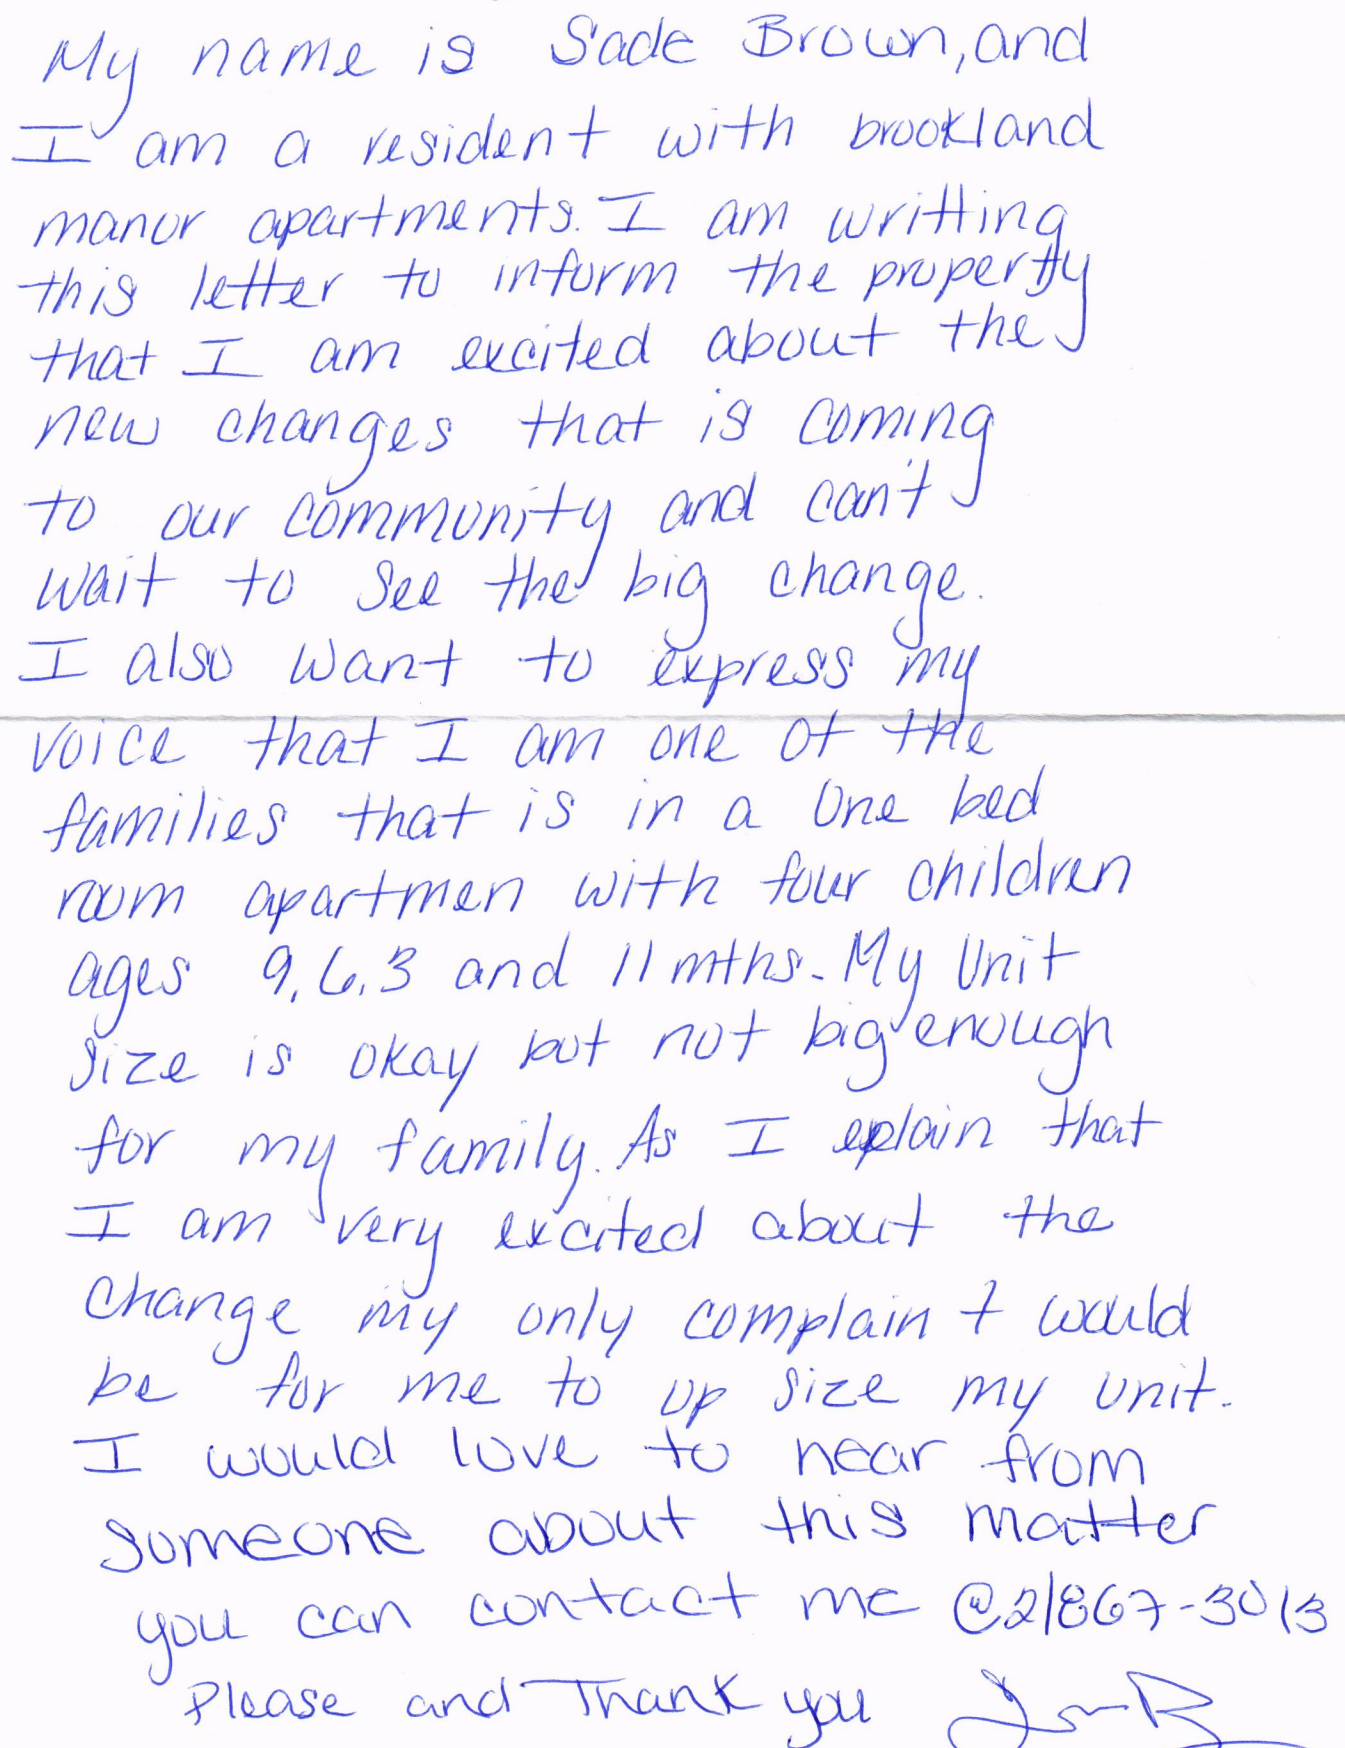 My name is Sade Brown, and
I am a resident with brookland
manor apartments. I am writting
this letter to inform the property
that I am excited about the
new changes that is coming
to our community and can't
wait to see the big change.
I also want to express my
voice that I am one of the
families that is in a one bed
room apartmen with four children
ages 9, 6, 3 and 11 mths. My Unit
size is okay but not big enough
for my family. As I eplain that
I am very excited about the
change my only complain t would
be for me to up size my unit.
I would love to hear from
someone about this matter
you can contact me @2/867-3013
Please and Thank you